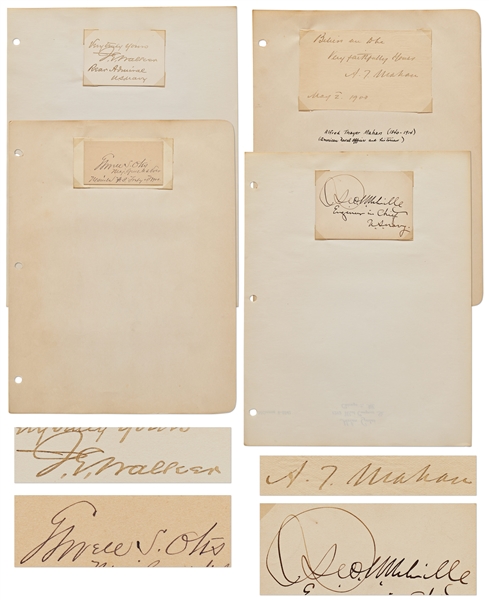 Very truly yours
J. G. Walker
Rear Admiral
U.S. Navy
Believe me to be
Very faithfully Yours
A. T. Mahan
May 2. 1900
Alfred Thayer Mahan (1840-1914)
(American Naval Officer and historian)
Elwell S. Otis
Geo. W. Melville
Engineer in Chief
U.S. Navy.
Very truly yours
J. G. Walker
A. T. Mahan
Elwell S. Otis
Geo. W. Melville